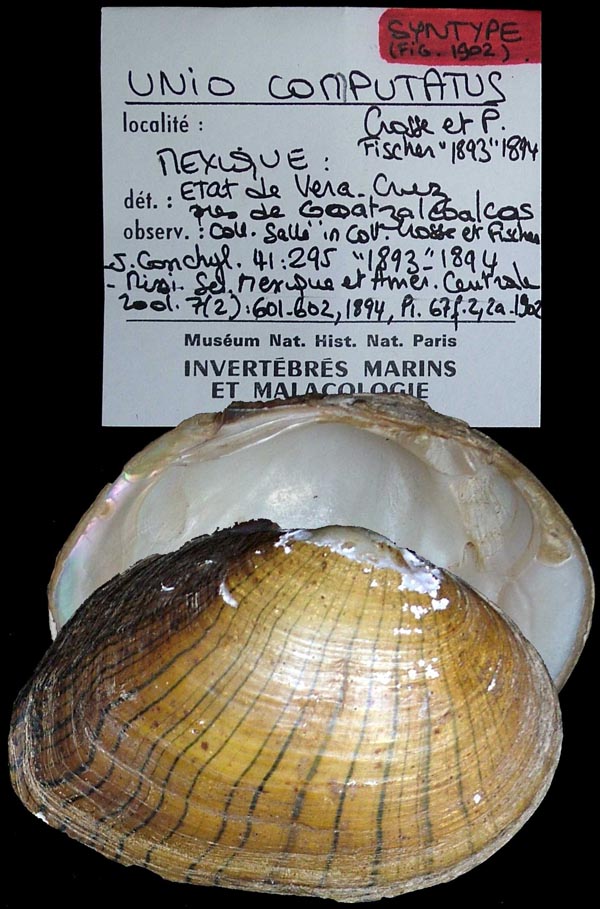 SYNTYPE
(FIG. 1902)
UNIO COMPUTATUS
localité :
Crosse et P.
Fischer "1893" 1894
MEXIQUE :
dét. : ETAT de Vera-Cruz
près de Goatzalcoalcos
observ. : Coll. Sallé in Coll. Crosse et Fischer
J. Conchyl. 41:295 "1893" 1894
- Miss. Sci. Mexique et Amér. Centrale
Zool. 7(2):601-602, 1894, Pl. 67f.2,2a-1902
Muséum Nat. Hist. Nat. Paris
INVERTÉBRÉS MARINS
ET MALACOLOGIE